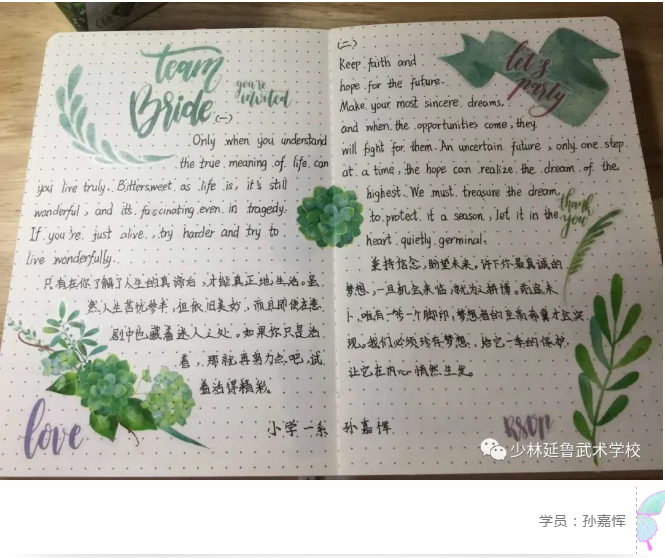 team
Bride
you're
invited
(一)
Only when you understand
the true meaning of life can
you live truly. Bittersweet as life is, it's still
wonderful, and it's fascinating even in tragedy.
If you're just alive, try harder and try to
live wonderfully.
只有在你了解了人生的真谛后，才能真正地生活。虽
然人生苦忧参半，但依旧美妙，而且即使在悲
剧中也藏着迷人之处。如果你只是活
着，那就再努力点吧，试
着活得精彩。
love
小学一系
(二)
let's
party
Keep faith and
hope for the future.
Make your most sincere dreams,
and when the opportunities come, they
will fight for them. An uncertain future, only one step
at a time, the hope can realize the dream of the
highest. We must treasure the dream,
to protect it a season, let it in the
heart quietly germinal.
thank
you
秉持信念，盼望未来。许下你最真诚的
梦想，一旦机会来临，就为之拼搏。前途未
卜，唯有一步一个脚印，梦想者的至高希冀才会实
现。我们必须珍存梦想，给它一季的保护，
让它在内心悄然生发。
孙嘉恽
RSVP
少林延鲁武术学校
学员：孙嘉恽